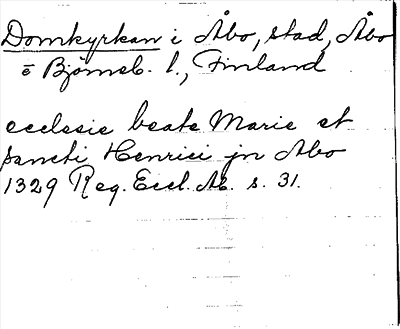 Domkyrkan i Åbo, stad, Åbo
o Björneb. l., Finland
ecclesie beate Marie et
sancti Henrici jn Abo
1329 Reg. Eccl. Ab. s. 31.